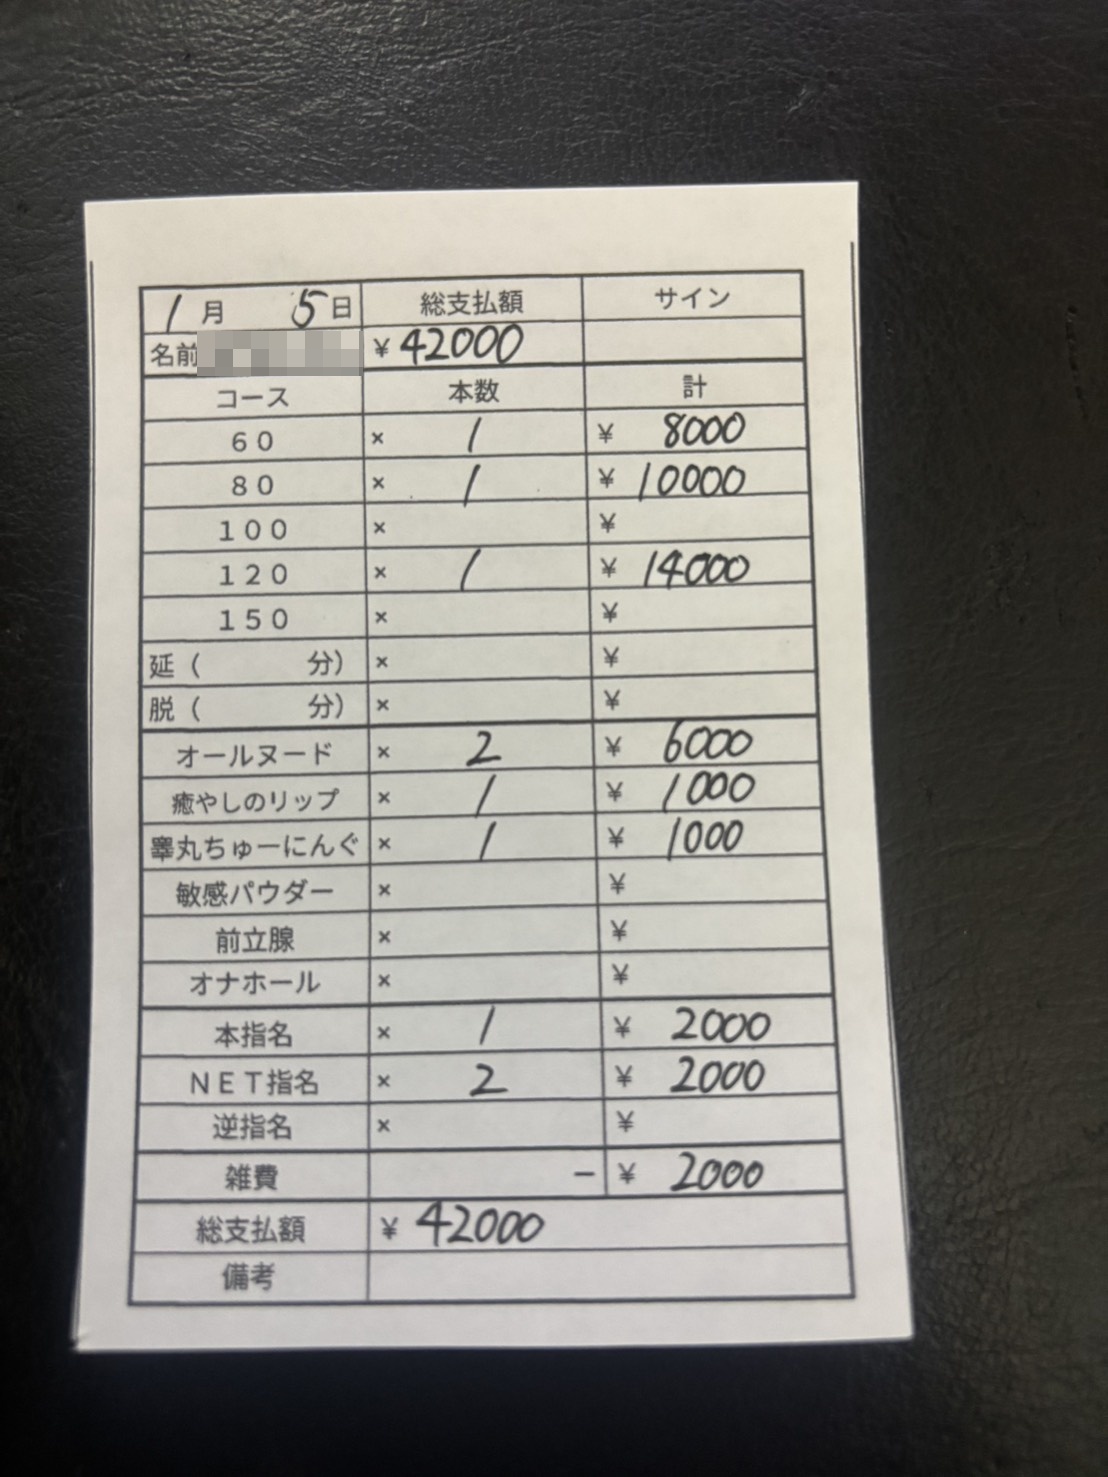 1月 5日 総支払額 サイン
名前 ¥42000
コース 本数 計
60 × 1 ¥ 8000
80 × 1 ¥ 10000
100 × ¥
120 × 1 ¥ 14000
150 × ¥
延（ 分） × ¥
脱（ 分） × ¥
オールヌード × 2 ¥ 6000
癒やしのリップ × 1 ¥ 1000
睾丸ちゅーにんぐ × 1 ¥ 1000
敏感パウダー × ¥
前立腺 × ¥
オナホール × ¥
本指名 × 1 ¥ 2000
NET指名 × 2 ¥ 2000
逆指名 × ¥
雑費 − ¥ 2000
総支払額 ¥ 42000
備考